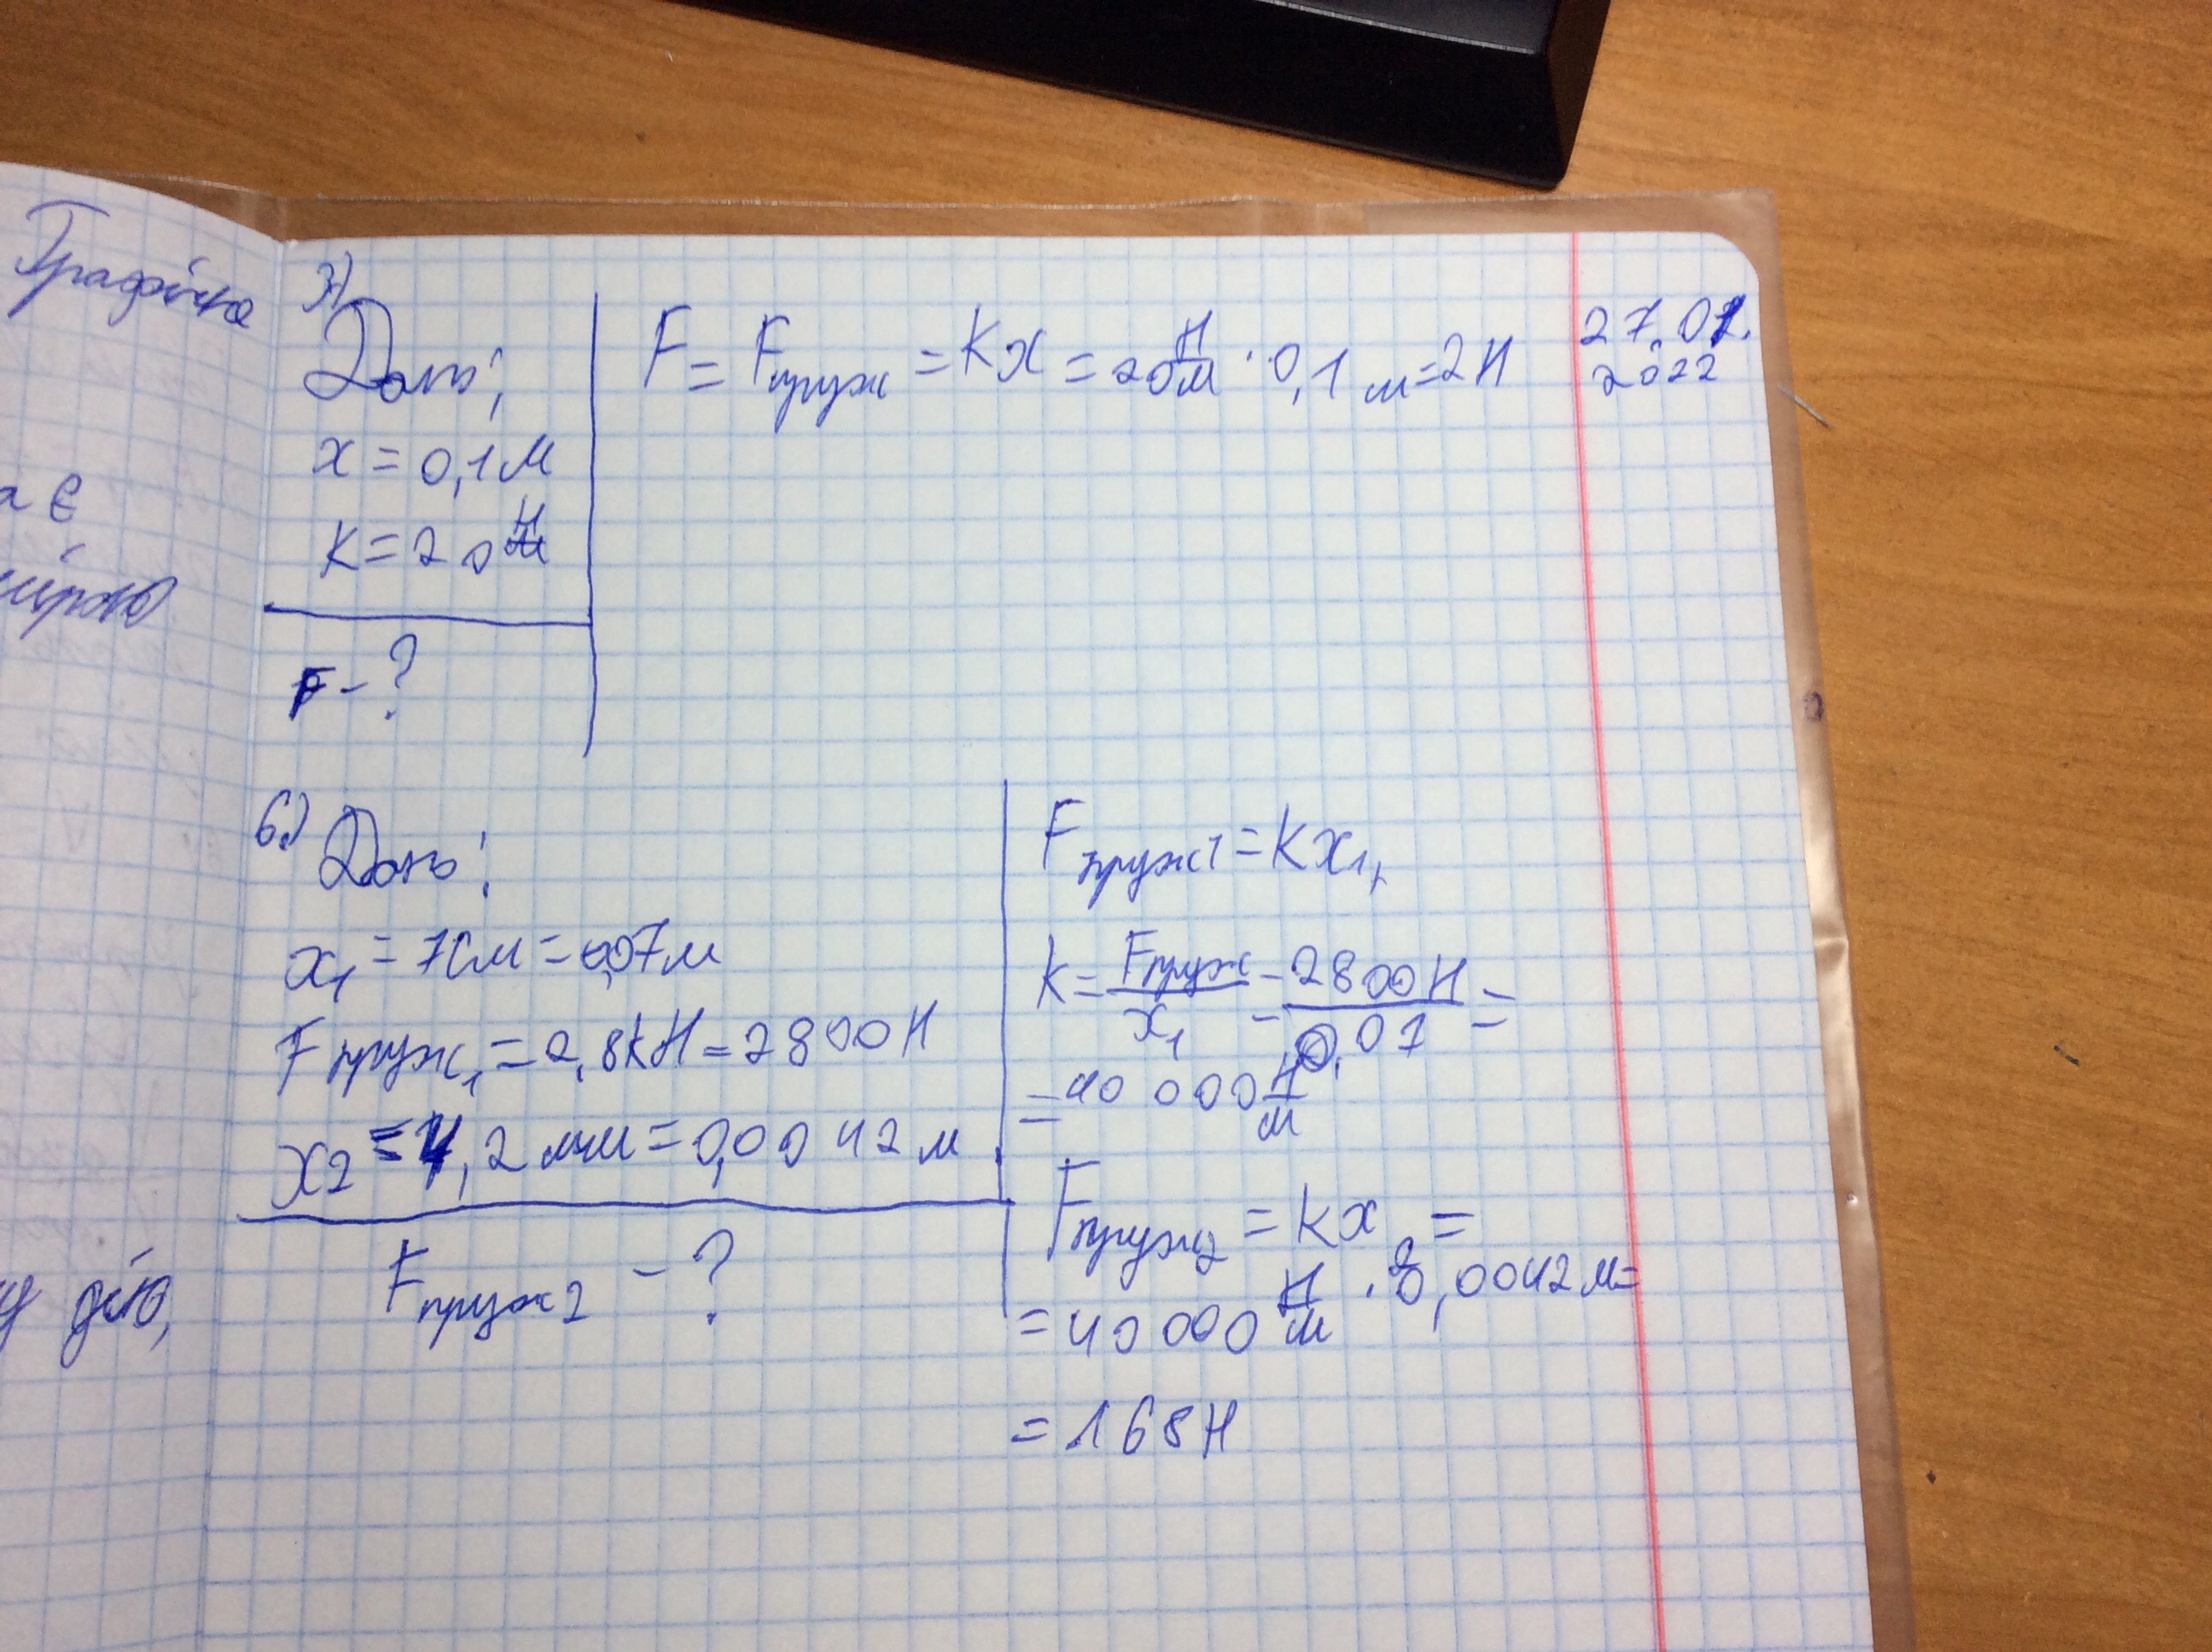 Графічна
а є
у дію,
3.)
Дано:
x = 0,1 м
k = 20 Н/м
F - ?
F = Fпруж = kx = 20 Н/м · 0,1 м = 2 Н
27.01.
2022
6.) Дано:
x₁ = 7см = 0,07м
Fпруж₁ = 2,8кН = 2800Н
x₂ = 4,2 мм = 0,0042 м
Fпруж2 - ?
Fпруж1 = kx₁,
k = Fпруж/x₁ = 2800Н/0,07 =
= 40 000 Н/м
Fпруж2 = kx₂ =
= 40 000 Н/м · 0,0042м =
= 168Н